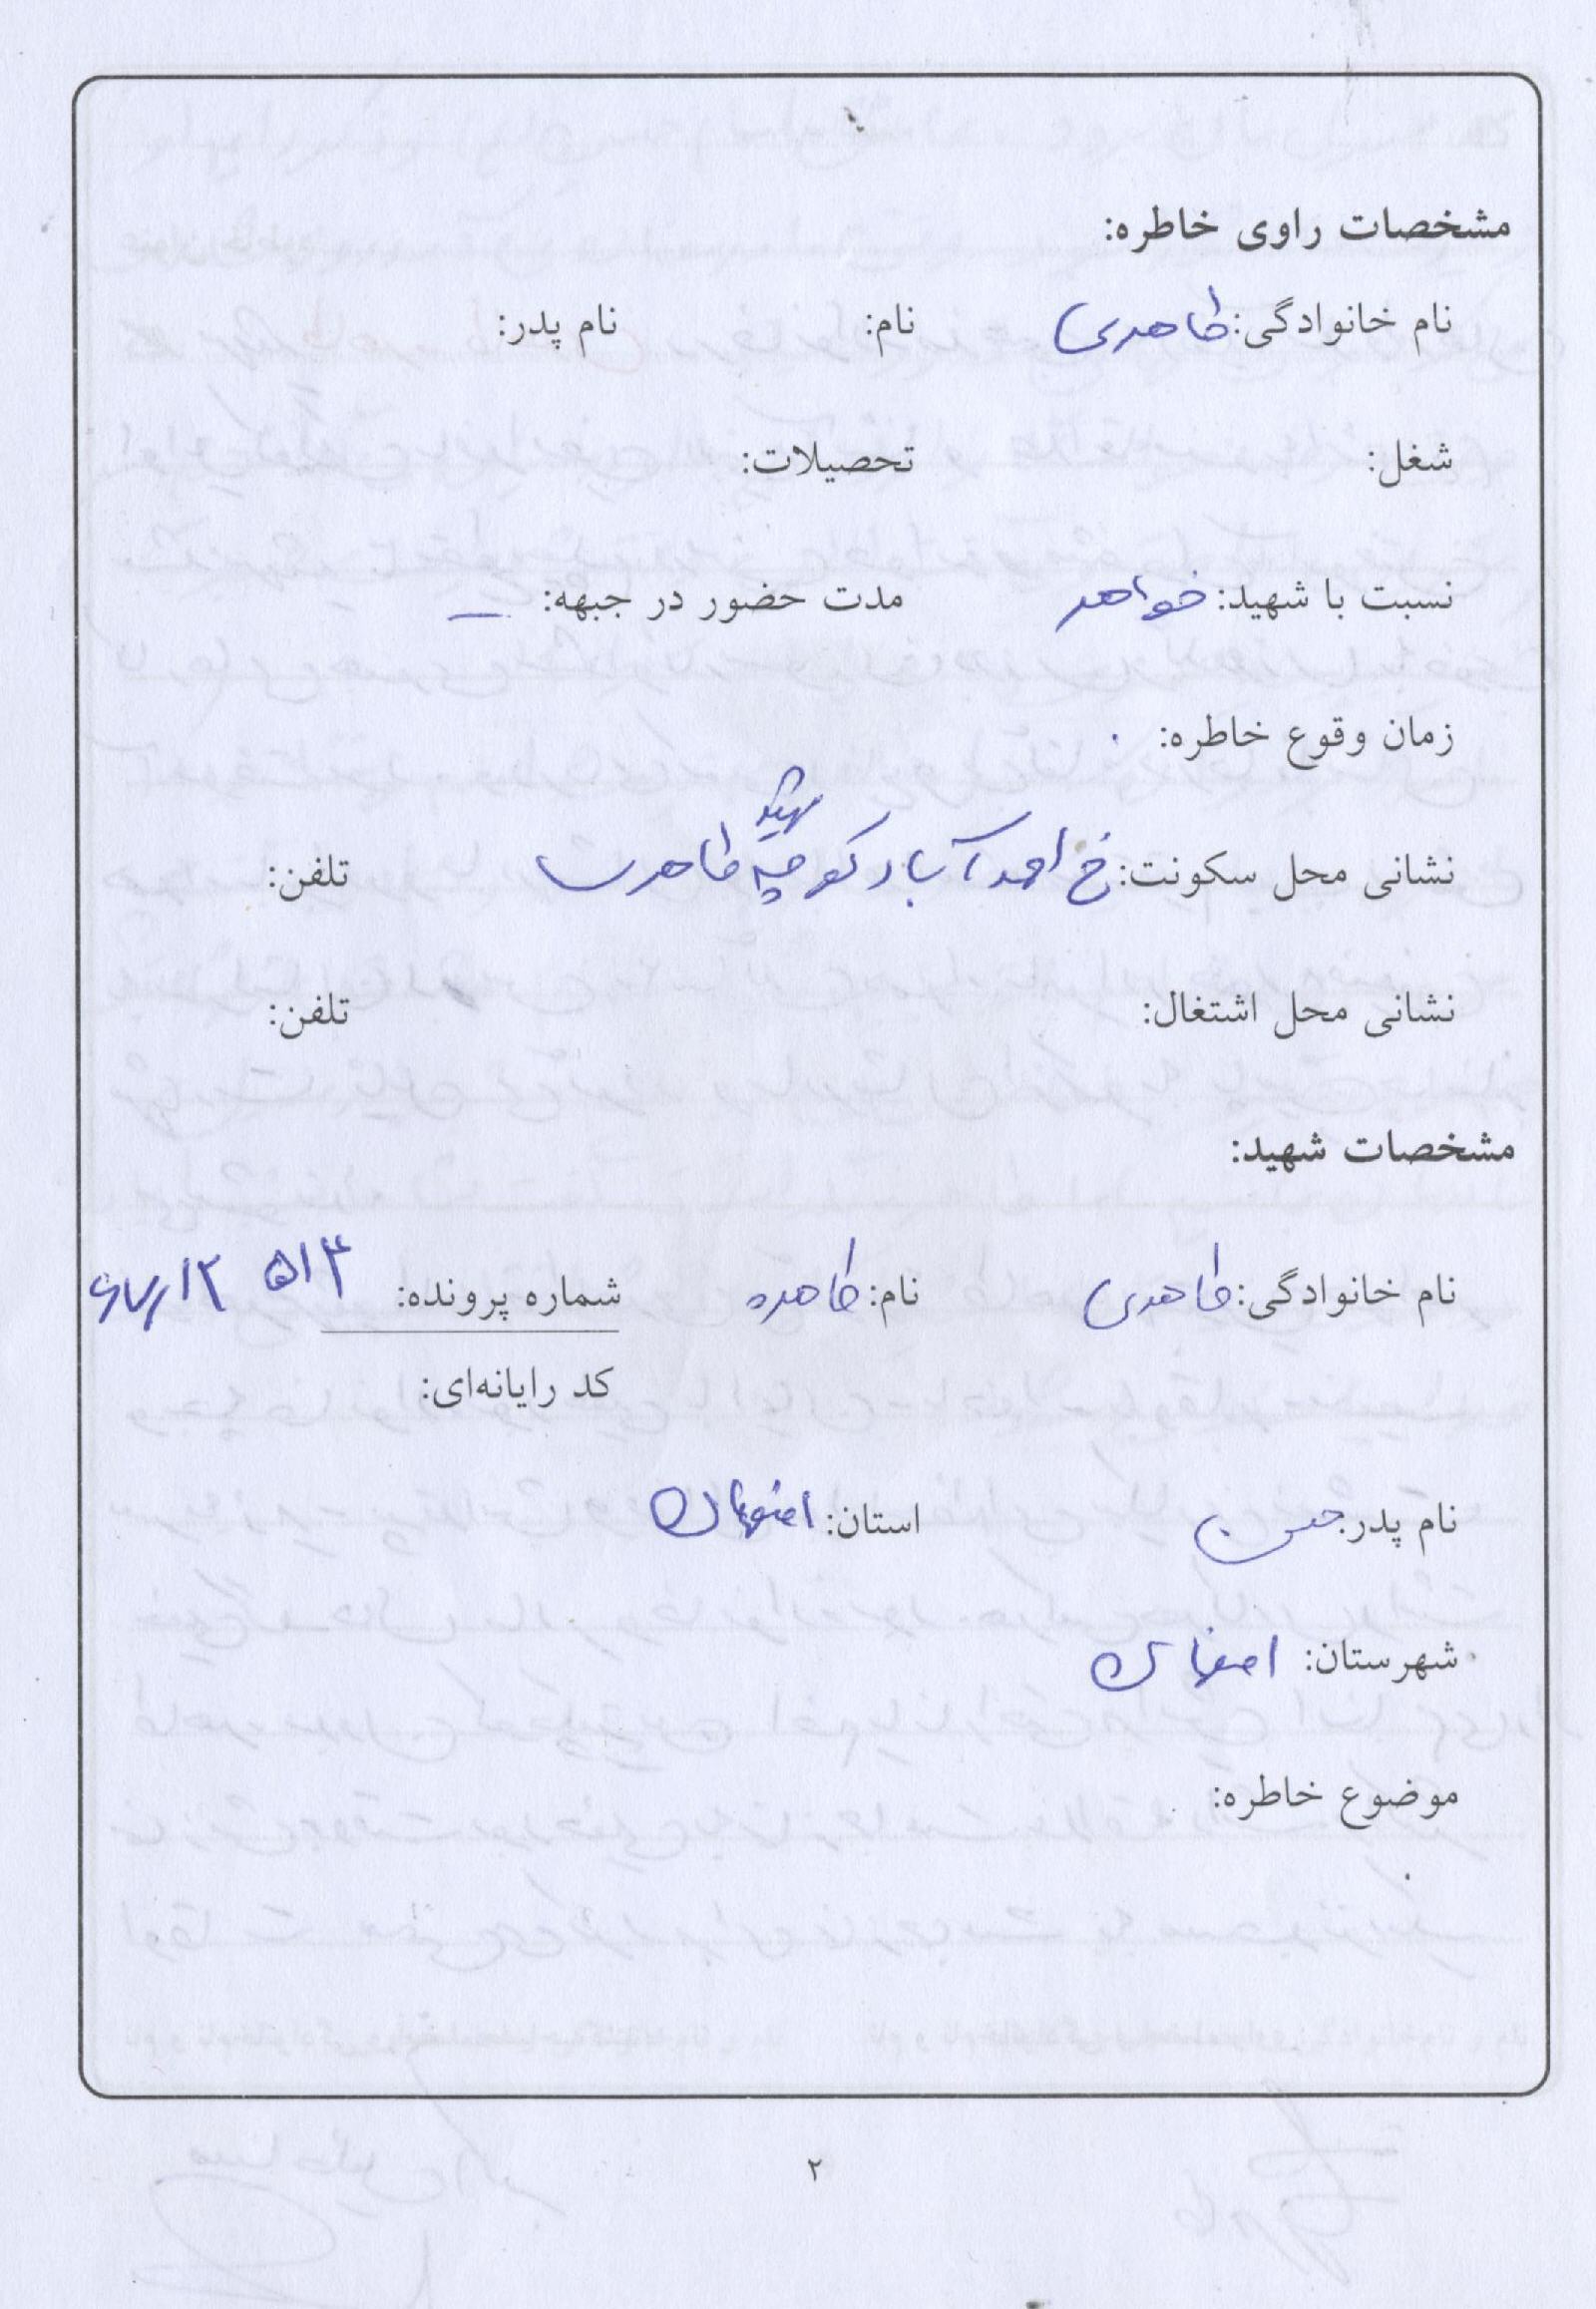 مشخصات راوی خاطره:
نام خانوادگی: طاهری نام: نام پدر:
شغل: تحصیلات:
نسبت با شهید: خواهر مدت حضور در جبهه: ــ
زمان وقوع خاطره:
نشانی محل سکونت: خ احمدآباد کوچه شهید طاهری تلفن:
نشانی محل اشتغال: تلفن:
مشخصات شهید:
نام خانوادگی: طاهری نام: طاهره شماره پرونده:
کد رایانه‌ای:
نام پدر: حسن استان: اصفهان
شهرستان: اصفهان
موضوع خاطره:
۲